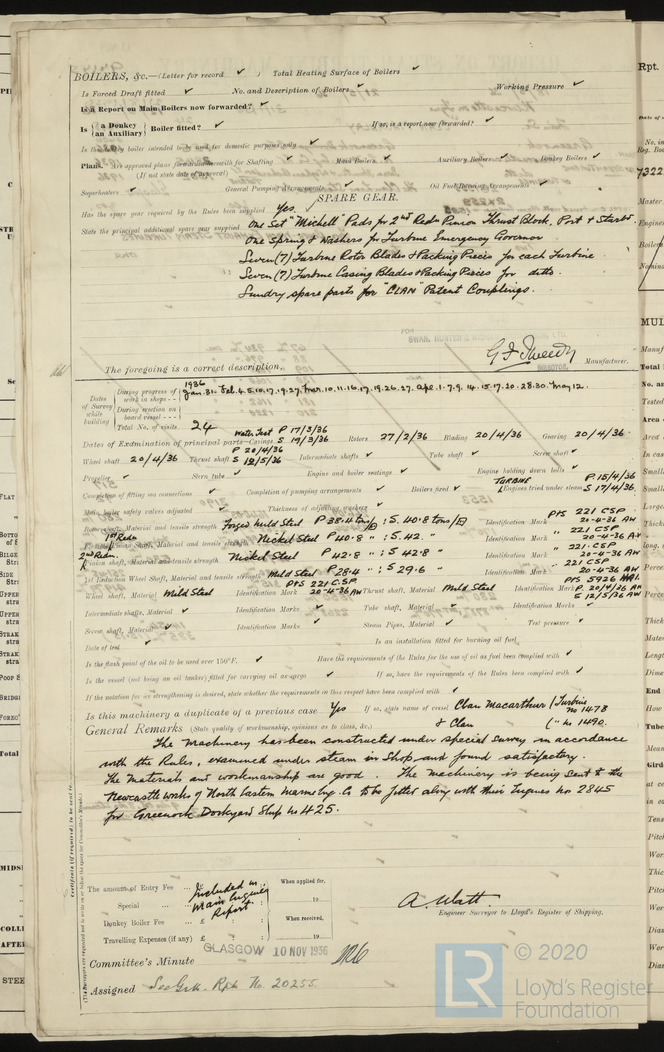 BOILERS, &c.—(Letter for record ✓ ) Total Heating Surface of Boilers ✓
Is Forced Draft fitted ✓ No. and Description of Boilers ✓ Working Pressure ✓
Is a Report on Main Boilers now forwarded? ✓
Is {a Donkey / an Auxiliary} Boiler fitted? ✓ If so, is a report now forwarded? ✓
Is the donkey boiler intended to be used for domestic purposes only ✓
Plans. Are approved plans forwarded herewith for Shafting ✓ Main Boilers ✓ Auxiliary Boilers ✓ Donkey Boilers ✓
(If not state date of approval)
Superheaters ✓ General Pumping Arrangements ✓ Oil Fuel Burning Arrangements ✓
SPARE GEAR.
Has the spare gear required by the Rules been supplied Yes. ✓
State the principal additional spare gear supplied One Set "Michell" Pads for 2nd Redn Pinion Thrust Block, Port & Starbd.
One Spring & Washers for Turbine Emergency Governor
Seven (7) Turbine Rotor Blades & Packing Pieces for each Turbine
Seven (7) Turbine Casing Blades & Packing Pieces for ditto.
Sundry spare parts for "CLAN" Patent Couplings.
FOR
SWAN, HUNTER &
The foregoing is a correct description, G F Tweedy Manufacturer.
DIRECTOR.
1936
Dates of Survey while building
During progress of work in shops - - Jan. 31. Feb. 4. 5. 10. 17. 19. 27. Mar. 10. 11. 16. 17. 19. 26. 27. Apl. 1. 7. 9. 14. 15. 17. 20. 28. 30. May 12.
During erection on board vessel - - -
Total No. of visits 24
Water Test P 17/3/36
Dates of Examination of principal parts—Casings S 19/3/36 Rotors 27/2/36 Blading 20/4/36 Gearing 20/4/36
P 20/4/36
Wheel shaft 20/4/36 Thrust shaft S 12/5/36 Intermediate shafts ✓ Tube shaft ✓ Screw shaft ✓
Propeller ✓ Stern tube ✓ Engine and boiler seatings ✓ Engine holding down bolts ✓
TURBINE P. 15/4/36
Completion of fitting sea connections ✓ Completion of pumping arrangements ✓ Boilers fixed ✓ Engines tried under steam S 17/4/36.
Main boiler safety valves adjusted ✓ Thickness of adjusting washers ✓
Rotor shaft, Material and tensile strength Forged Mild Steel P 38.4 tons/□" : S. 40.8 tons/□" Identification Mark P&S 221 CSP 20-4-36 AW
1st Redn. Pinion shaft, Material and tensile strength Nickel Steel P 40.8 " : S. 42. " Identification Mark " 221 CSP 20-4-36 AW
2nd Redn. Pinion shaft, Material and tensile strength Nickel Steel P 42.8 " : S 42.8 " Identification Mark " 221 CSP 20-4-36 AW
1st Reduction Wheel Shaft, Material and tensile strength Mild Steel P 28.4 " : S 29.6 " Identification Mark 221 CSP 20-4-36 AW
Wheel shaft, Material Mild Steel Identification Mark P&S 221 CSP 20-4-36 AW Thrust shaft, Material Mild Steel Identification Mark P&S 5926 P. 20/4/36 AW S 12/5/36 AW
Intermediate shafts, Material ✓ Identification Marks ✓ Tube shaft, Material ✓ Identification Marks ✓
Screw shaft, Material ✓ Identification Marks ✓ Steam Pipes, Material ✓ Test pressure ✓
Date of test ✓ Is an installation fitted for burning oil fuel
Is the flash point of the oil to be used over 150°F. ✓ Have the requirements of the Rules for the use of oil as fuel been complied with ✓
Is the vessel (not being an oil tanker) fitted for carrying oil as cargo ✓ If so, have the requirements of the Rules been complied with ✓
If the notation for ice strengthening is desired, state whether the requirements in this respect have been complied with ✓
Is this machinery a duplicate of a previous case Yes If so, state name of vessel Clan Macarthur (Turbine No 1478
& Clan (" No 1490.
General Remarks (State quality of workmanship, opinions as to class, &c.)
The Machinery has been constructed under special survey in accordance
with the Rules, examined under steam in Shop and found satisfactory.
The Materials and workmanship are good. The machinery is being sent to the
Newcastle works of North Eastern Marine Eng Co to be fitted along with their Engines No 2845
for Greenock Dockyard Ship No 425.
The amount of Entry Fee ... Included in Main Engine Report. When applied for,
Special ... ... 19
Donkey Boiler Fee ... £ : When received,
Travelling Expenses (if any) £ : 19
A. Watt.
Engineer Surveyor to Lloyd's Register of Shipping.
Committee's Minute GLASGOW 10 NOV 1936
Assigned See Grk. Rpt. No. 20255.
© 2020
LR
Lloyd's Register
Foundation
Rpt.
7322